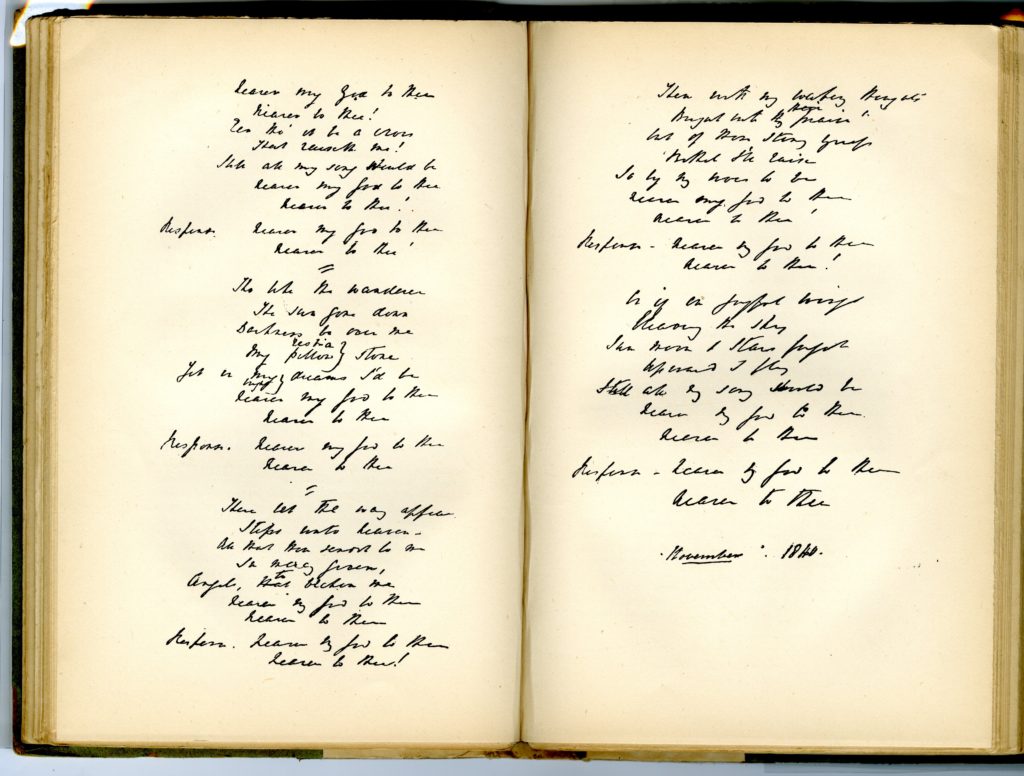 Nearer my God to Thee
Nearer to thee!
Een tho' it be a cross
That raiseth me!
Still all my song should be
Nearer my God to thee
Nearer to thee!
Response Nearer my God to thee
Nearer to thee
Tho like the wanderer
The sun gone down
Darkness be over me
My pillow stone
Yet in my dreams I'd be
Nearer my God to thee
Nearer to thee
Response. Nearer my God to thee
Nearer to thee
There let the way appear
Steps unto heaven -
All that thou sendst to me
In mercy given,
Angels, to beckon me
Nearer my God to thee
Nearer to thee
Response. Nearer my God to thee
Nearer to thee!
Then with my waking thoughts
Bright with thy praise
Out of stony griefs
Bethel I'll raise
So by my woes to be
Nearer my God to thee
Nearer to thee!
Response - Nearer my God to thee
Nearer to thee!
Or if on joyful wing
Cleaving the sky
Sun moon & stars forgot
Upward I fly
Still all my song should be
Nearer my God to thee
Nearer to thee
Response - Nearer my God to thee
Nearer to thee
"November". 1840.